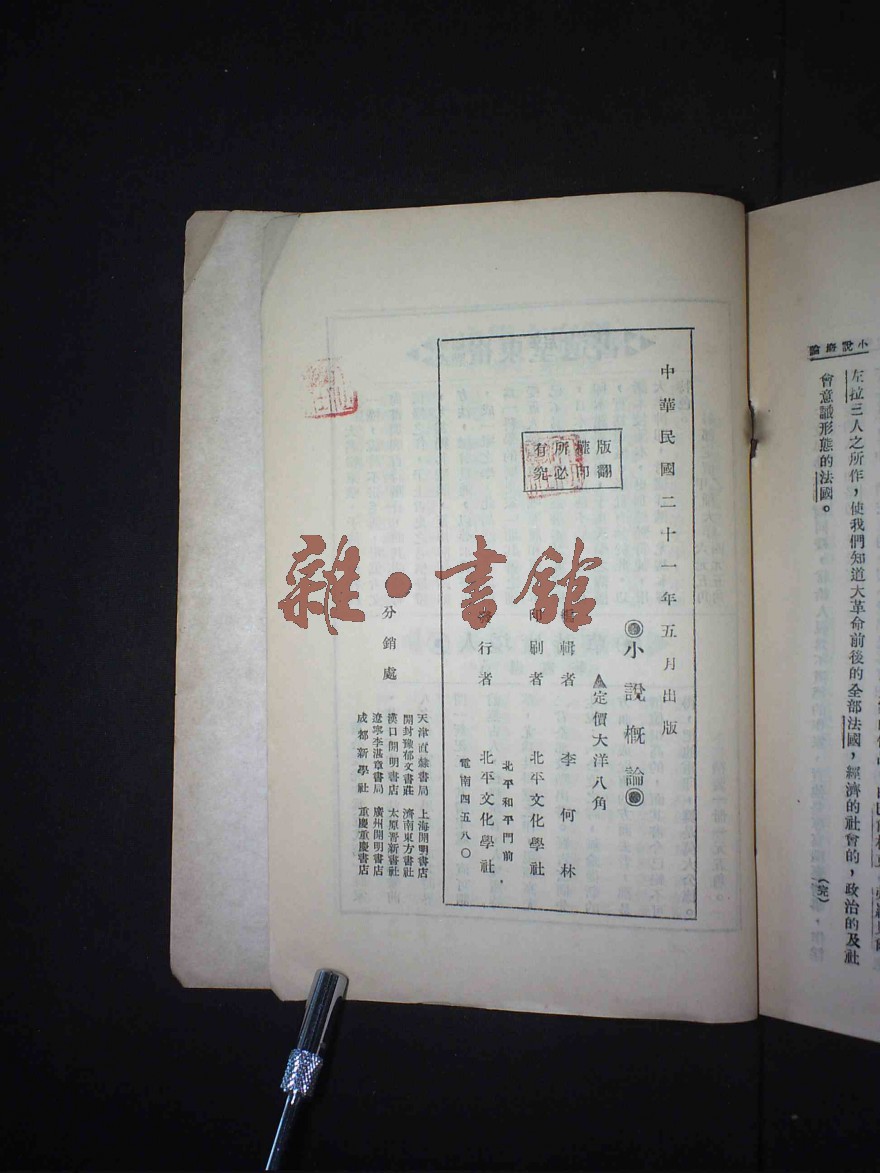 小說概論
左拉三人之所作，使我們知道大革命前後的全部法國，經濟的社會的，政治的及社
會意識形態的法國。
（完）
中華民國二十一年五月出版
版權所有
翻印必究
◉小說概論◉
定價大洋八角
編輯者 李何林
印刷者 北平文化學社
北平和平門前，
發行者 北平文化學社
電南四五八〇
分銷處
天津直隸書局 上海開明書店
開封豫郁文書莊 濟南東方書社
漢口開明書店 太原晋新書社
遼寧李湛章書局 廣州開明書店
成都新學社 重慶重慶書店
雜•書館